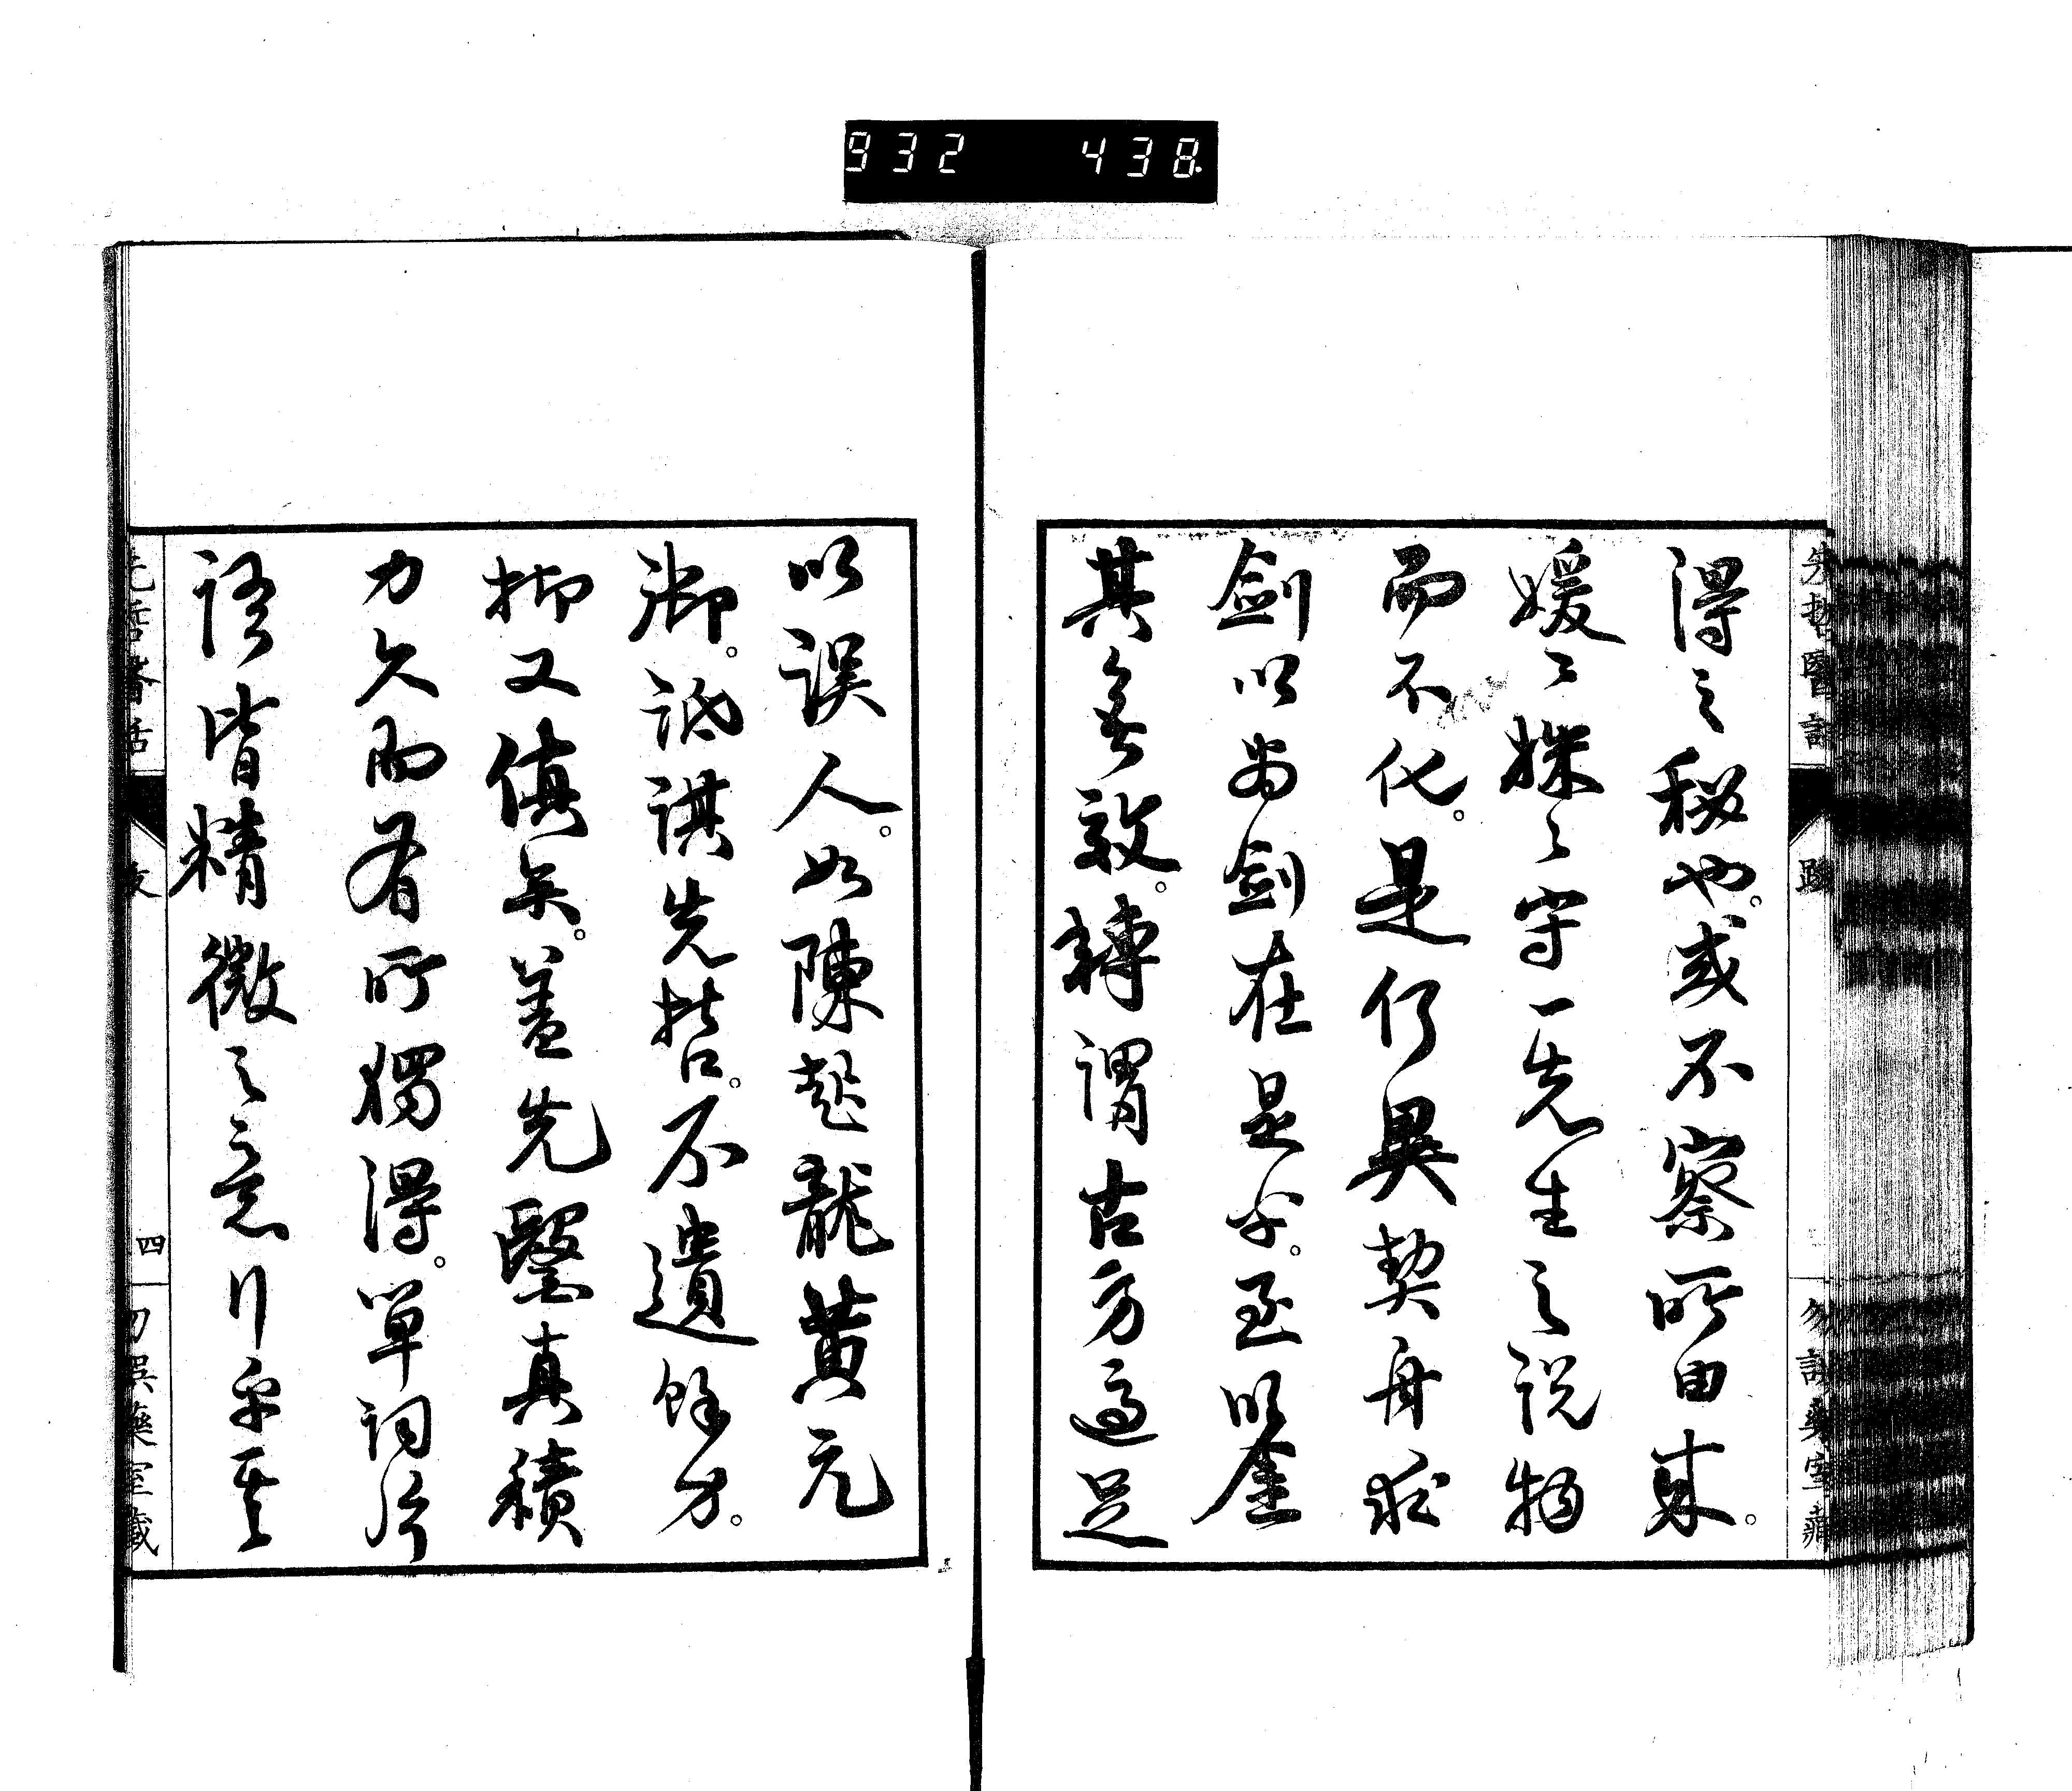 932 438
先哲醫話
跋
勿誤藥室藏
得之秘也。或不察所由來。
媛〻姝〻守一先生之說物
而不化。是何異契舟求
劍以為劍在是乎。至以
其無效。轉謂古方適足
以誤人。如陳起龍黃元
御。詆諆先哲。不遺餘力。
抑又傎矣。蓋先醫真積
力久而有所獨得。單詞片
語皆精微之意
先哲醫話
跋
四
勿誤藥室藏